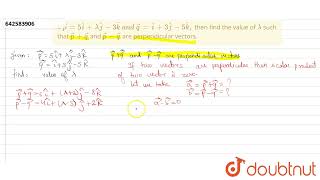 642583906
p = 5î + λĵ - 3k̂ and q = î + 3ĵ - 5k̂, then find the value of λ such
that p⃗ + q⃗ and p⃗ - q⃗ are perpendicular vectors.
given: p⃗ = 5î + λĵ - 3k̂ p⃗+q⃗ and p⃗-q⃗ are perpendicular vectors
q⃗ = î + 3ĵ - 5k̂
find: value of λ
If two vectors are perpendicular then scalar product
of two vector is zero.
let we take a⃗ = p⃗+q⃗ = ?
b⃗ = p⃗-q⃗ = ?
p⃗+q⃗ = 6î + (λ+3)ĵ - 8k̂
p⃗-q⃗ = 4î + (λ-3)ĵ + 2k̂
a⃗·b⃗ = 0
doubtnut